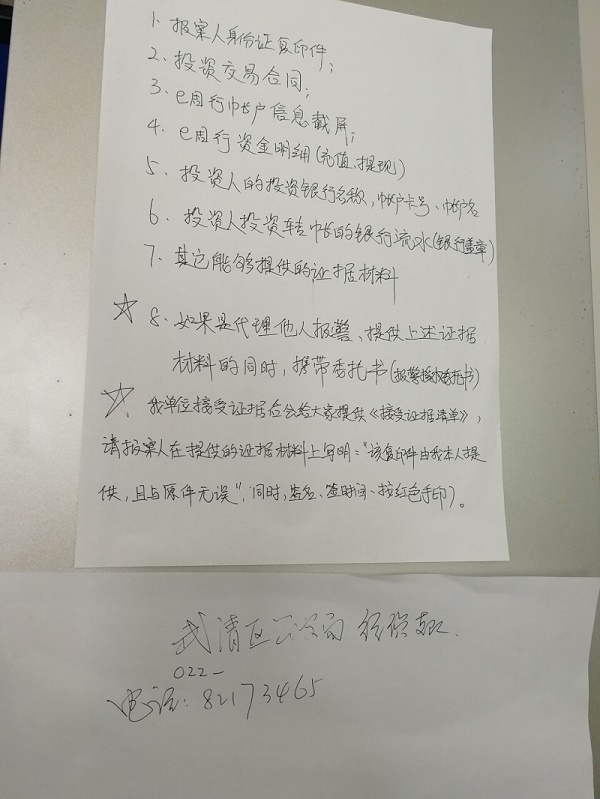 1. 报案人身份证复印件;
2. 投资交易合同;
3. e周行帐户信息截屏;
4. e周行资金明细(充值、提现)
5. 投资人的投资银行名称,帐户卡号、帐户名
6. 投资人投资转帐的银行流水(银行盖章)
7. 其它能够提供的证据材料
☆ 8. 如果是代理他人报警、提供上述证据
材料的同时,携带委托书(报警授权委托书)
☆. 我单位接受证据后会给大家提供《接受证据清单》,
请报案人在提供的证据材料上写明:“该复印件由我本人提
供,且与原件无误”,同时,签名、签时间、按红色手印)。
武清区公安局 经侦支队
022-
电话: 82173465